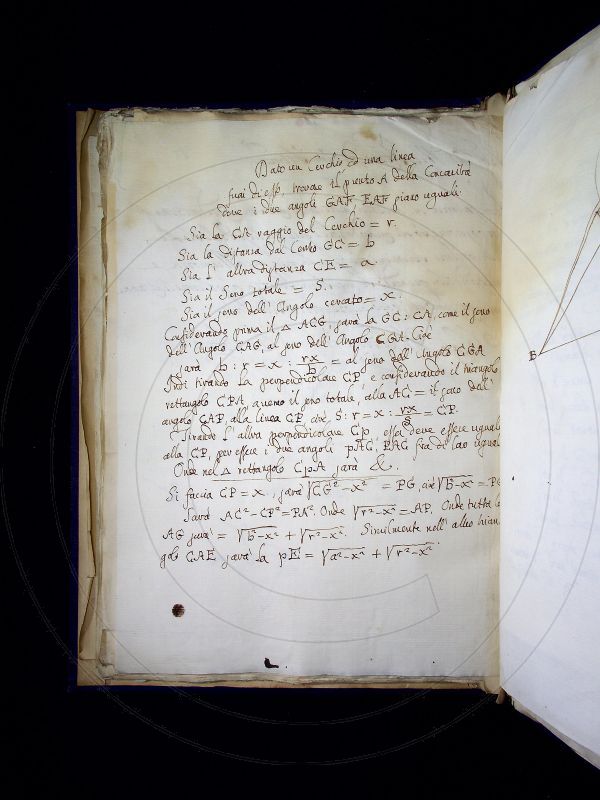 Dato un Cerchio ed una linea
fuai di esso, trovare il punto A della Concavità
dove i due angoli GAF, EAF siano uguali.
Sia la CA raggio del Cerchio = r.
Sia la distanza dal Cento GC = b
Sia l' altra distanza CE = a
Sia il Seno totale = S.
Sia il seno dell' Angolo cercato = x.
Considerando prima il △ ACG, sarà la GC : CA, come il seno
dell' Angolo CAG, al seno dell' Angolo CGA. Cioè
sarà b : r = x : rx/b = al seno dell' Angolo CGA
Indi tirando la perpendicolare CP, e considerando il triangolo
rettangolo CPA avremo il seno totale, alla AC = il seno dell'
angolo CAP, alla linea CP, cioè S : r = x : rx/S = CP.
Tirando l' altra perpendicolare Cp, essa deve essere uguale
alla CP, per essere i due angoli pAC, PAC fra di loro uguali
Onde nel △ rettangolo CpA sarà &.
Si faccia CP = x, sarà √CG² - x² = PG, cioè √b² - x² = PG
Sarà AC² - CP² = PA². Onde √r² - x² = AP. Onde tutta la
AG sarà = √b² - x² + √r² - x². Similmente nell' altro trian
golo CAE sarà la pE = √a² - x² + √r² - x²
B